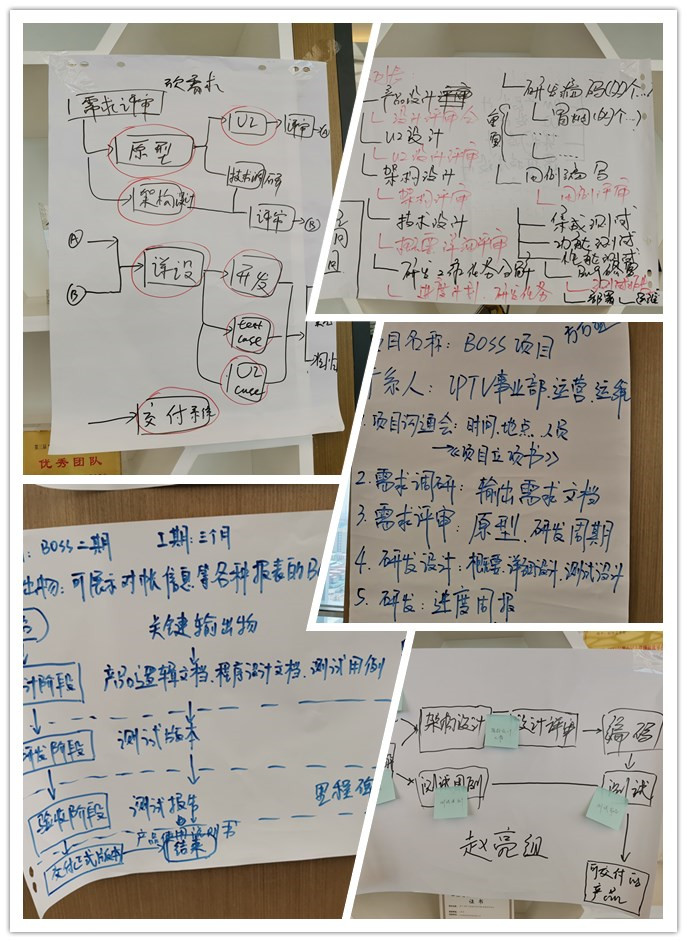 砍需求
1 需求评审
原型
U2
评审
技术调研
架构设计
评审
B
A
B
详设
开发
test
case
U2
case
交付
优秀团队
产品设计
设计评审会
U2设计
U2设计评审
架构设计
架构评审
技术设计
概要详细评审
进度计划、研发任务
研发编码(的个...)
冒烟(的个...)
......
......
用例编写
用例评审
集成测试
功能测试
性能测试
目名称: BOSS项目
系人: IPTV事业部、运营、运维
1.项目沟通会: 时间、地点、人员
→《项目立项书》
2.需求调研: 输出需求文档
3.需求评审: 原型、研发周期
4.研发设计: 概要、详细设计、测试设计
5.研发: 进度周报
: BOSS二期 工期: 三个月
出物: 可展示对帐信息等各种报表的B
关键输出物
计阶段
产品逻辑文档、程序设计文档、测试用例
开发阶段
测试版本
验收阶段
测试报告
里程
交付正式版本
产品
结果
架构设计
设计评审
编码
测试用例
测试
可交付的
产品
赵亮组